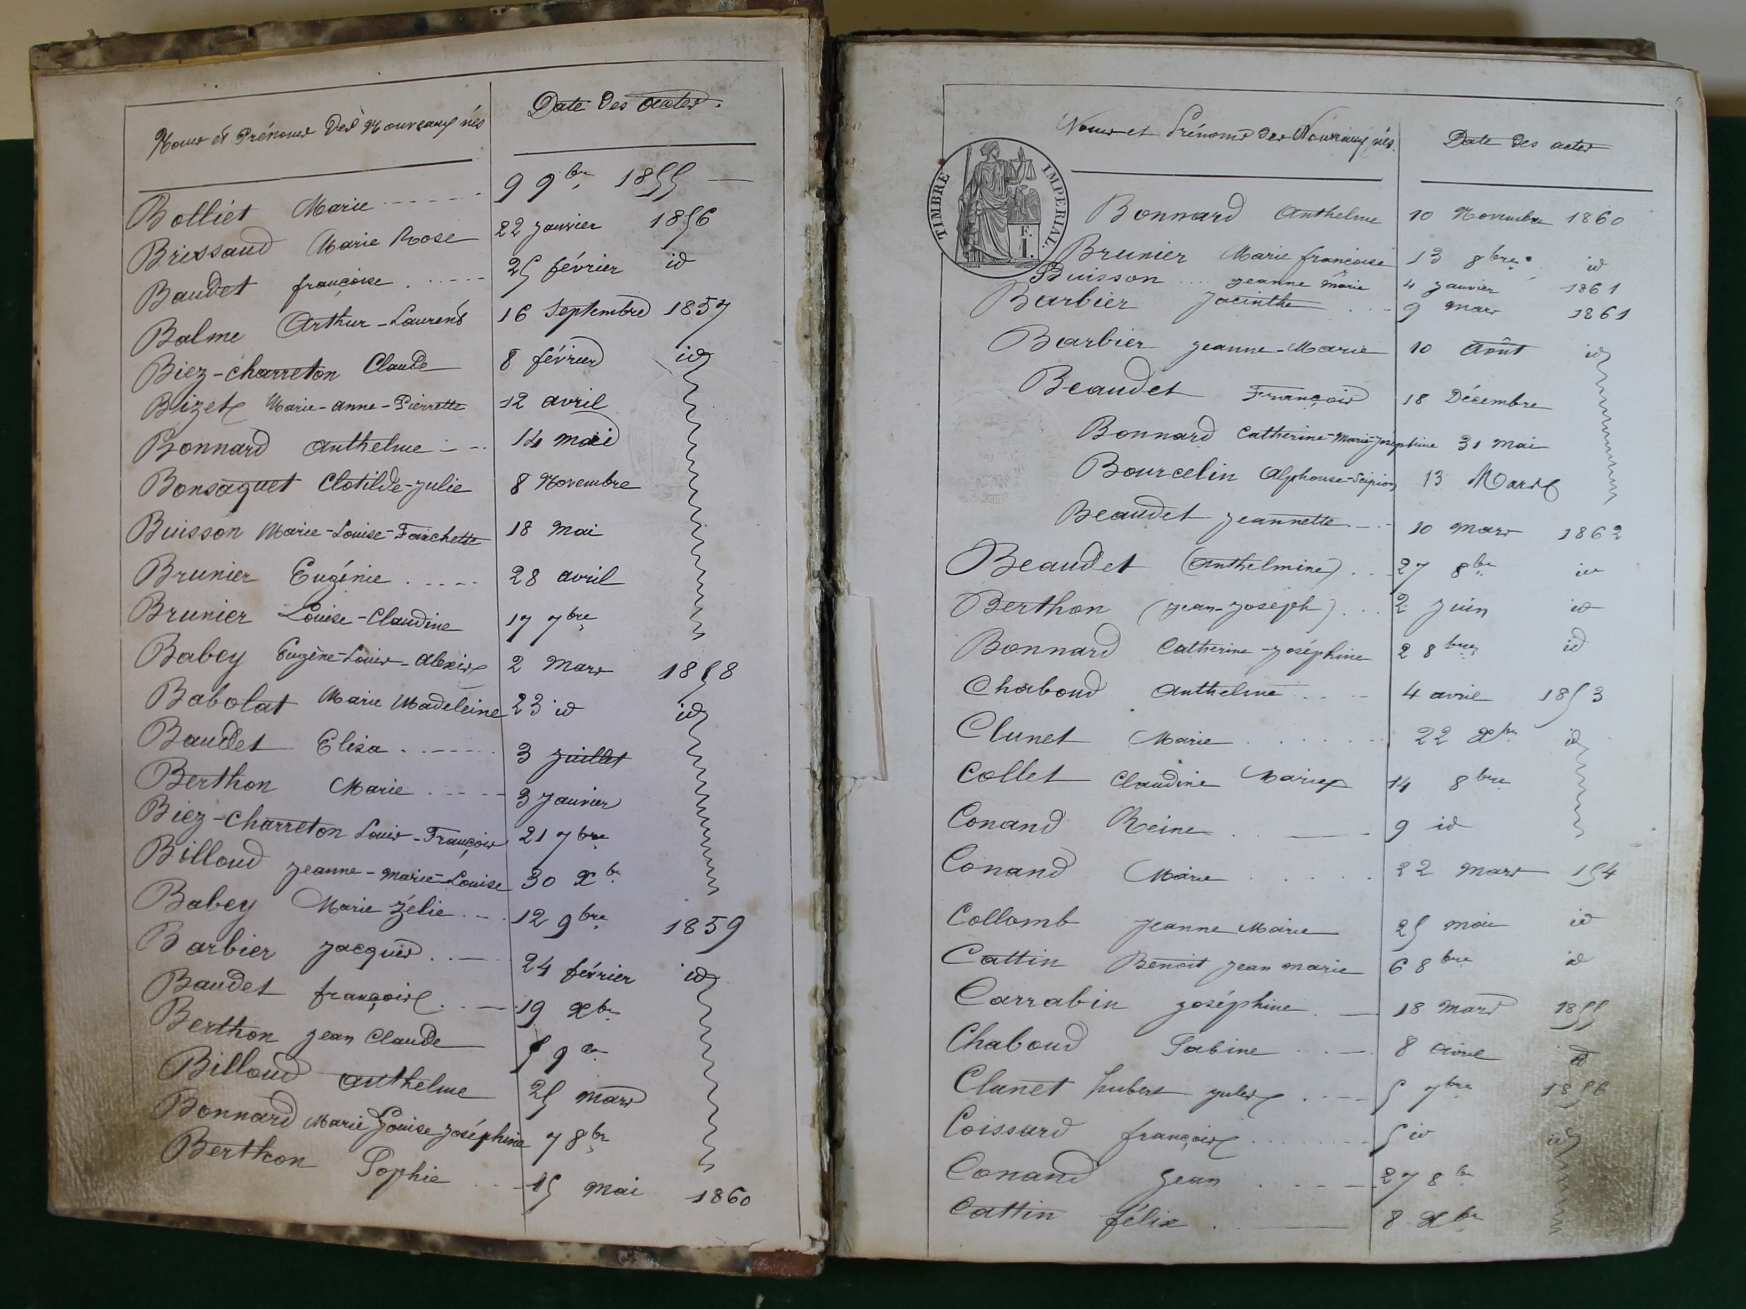 Noms et Prénoms des Nouveaux nés Date des actes.
Bolliet Marie 9 9bre 1855
Brissaud Marie Rose 22 janvier 1856
Baudet françoise 25 février id
Balme Arthur-Laurent 16 Septembre 1857
Biez-charreton Claude 8 février id
Bizet Marie-anne-Pierrette 12 avril
Bonnard anthelme 14 mai
Bonsaquet Clotilde-julie 8 Novembre
Buisson Marie-Louise-Fanchette 18 mai
Brunier Eugénie 28 avril
Brunier Louise-Claudine 17 7bre
Babey Eugène-Louis-Alexis 2 Mars 1858
Babolat Marie Madeleine 23 id id
Baudet Elisa 3 juillet
Berthon Marie 3 janvier
Biez-charreton Louis-François 21 7bre
Billoud jeanne-marie-Louise 30 Xbre
Babey Marie Zélie 12 9bre 1859
Barbier jacques 24 février id
Baudet françois 19 Xbre
Berthon jean Claude 5 9bre
Billoud anthelme 25 mars
Bonnard Marie Louise joséphine 7 8bre
Berthon Sophie 15 mai 1860
Noms et Prénoms des Nouveaux nés. Date des actes
TIMBRE IMPERIAL.
F.
1.
Bonnard anthelme 10 Novembre 1860
Brunier Marie françoise 13 8bre id
Buisson jeanne marie 4 janvier 1861
Barbier jacinthe 9 mars 1861
Barbier jeanne-Marie 10 Août id
Beaudet François 18 Décembre
Bonnard Catherine-Marie-joséphine 31 mai
Bourcelin Alphonse-Scipion 13 Mars
Beaudet jeannette 10 mars 1862
Beaudet (anthelmine) 27 8bre id
Berthon (jean-joseph) 2 juin id
Bonnard Catherine-joséphine 2 8bre id
Chaboud anthelme 4 avril 1853
Clunet Marie 22 Xbre id
Collet Claudine Marie 14 8bre
Conand Reine 9 id
Conand Marie 22 mars 154
Collomb jeanne Marie 25 mai id
Cattin Benoit jean marie 6 8bre id
Carrabin joséphine 18 mars 1855
Chaboud Sabine 8 avril id
Clunet hubert jules 5 7bre 1856
Coissard françois 5 id id
Conand jean 27 8bre
Cattin félix 8 Xbre